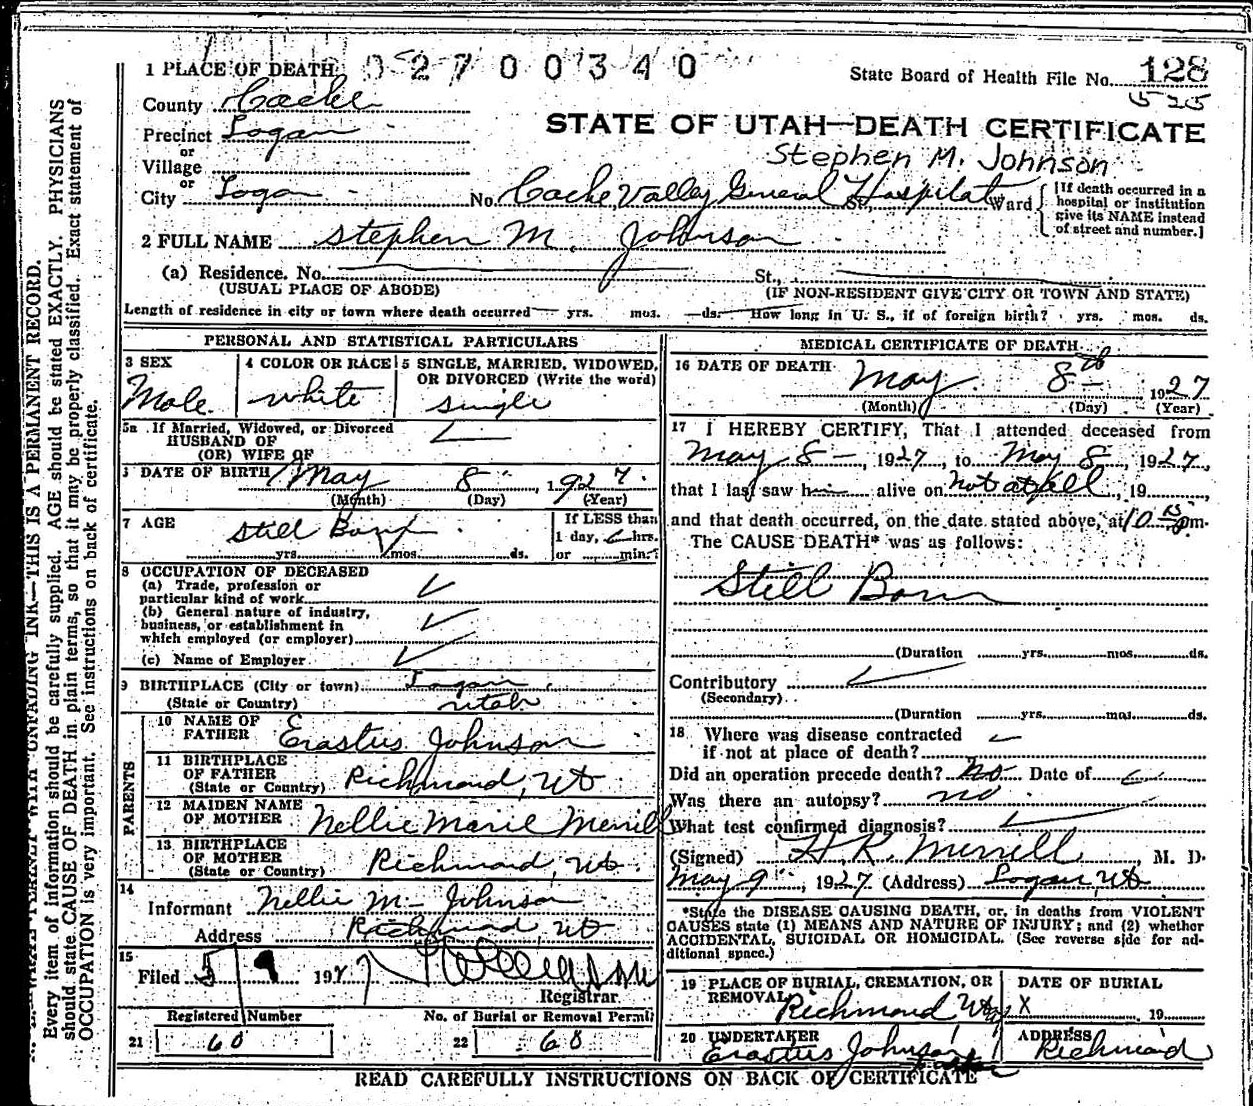 1 PLACE OF DEATH 02700340
State Board of Health File No. 128
525
County Cache
Precinct Logan
or
Village
or
City Logan
STATE OF UTAH—DEATH CERTIFICATE
Stephen M. Johnson
No. Cache Valley General Hospital St., Ward
[If death occurred in a
hospital or institution
give its NAME instead
of street and number.]
2 FULL NAME Stephen M. Johnson
(a) Residence. No. St.,
(USUAL PLACE OF ABODE) (IF NON-RESIDENT GIVE CITY OR TOWN AND STATE)
Length of residence in city or town where death occurred yrs. mos. ds. How long in U. S., if of foreign birth? yrs. mos. ds.
PERSONAL AND STATISTICAL PARTICULARS
3 SEX
Male
4 COLOR OR RACE
white
5 SINGLE, MARRIED, WIDOWED,
OR DIVORCED (Write the word)
single
5a If Married, Widowed, or Divorced
HUSBAND OF
(OR) WIFE OF
DATE OF BIRTH May 8 1927
(Month) (Day) (Year)
7 AGE Still Born
yrs. mos. ds.
If LESS than
1 day, hrs.
or min.?
8 OCCUPATION OF DECEASED
(a) Trade, profession or
particular kind of work
(b) General nature of industry,
business, or establishment in
which employed (or employer)
(c) Name of Employer
9 BIRTHPLACE (City or town) Logan
(State or Country) Utah
PARENTS
10 NAME OF
FATHER Erastus Johnson
11 BIRTHPLACE
OF FATHER
(State or Country) Richmond, Ut
12 MAIDEN NAME
OF MOTHER Nellie Marie Merrill
13 BIRTHPLACE
OF MOTHER
(State or Country) Richmond, Ut
14
Informant Nellie M. Johnson
Address Richmond, Ut
15
Filed 5/9 1927
Registrar
Registered Number
21 60
No. of Burial or Removal Permit
22 60
MEDICAL CERTIFICATE OF DEATH
16 DATE OF DEATH May 8th 1927
(Month) (Day) (Year)
17 I HEREBY CERTIFY, That I attended deceased from
May 8 —, 1927, to May 8, 1927,
that I last saw him alive on not at all, 19
and that death occurred, on the date stated above, at 10 15 pm.
The CAUSE DEATH* was as follows:
Still Born
(Duration yrs. mos. ds.
Contributory
(Secondary)
(Duration yrs. mos. ds.
18 Where was disease contracted
if not at place of death?
Did an operation precede death? No Date of
Was there an autopsy? no
What test confirmed diagnosis?
(Signed) H. R. Merrill, M. D.
May 9, 1927 (Address) Logan, Ut
*State the DISEASE CAUSING DEATH, or, in deaths from VIOLENT
CAUSES state (1) MEANS AND NATURE OF INJURY; and (2) whether
ACCIDENTAL, SUICIDAL OR HOMICIDAL. (See reverse side for ad-
ditional space.)
19 PLACE OF BURIAL, CREMATION, OR
REMOVAL Richmond
DATE OF BURIAL
X 19
20 UNDERTAKER
Erastus Johnson
ADDRESS
Richmond
READ CAREFULLY INSTRUCTIONS ON BACK OF CERTIFICATE
INK—THIS IS A PERMANENT RECORD.
Every item of information should be carefully supplied. AGE should be stated EXACTLY. PHYSICIANS
should state CAUSE OF DEATH in plain terms, so that it may be properly classified. Exact statement of
OCCUPATION is very important. See instructions on back of certificate.